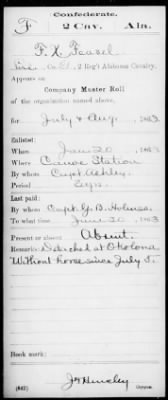 Confederate.
F 2 Cav. Ala.
F. X. Feasel
Co. E, 2 Reg't Alabama Cavalry.
Appears on
Company Muster Roll
of the organization named above,
for July & Aug, 1863
Enlisted:
When June 20, 1863
Where Canoe Station
By whom Capt. Ashley
Period
Last paid:
By whom Capt. G. B. Holmes
To what time June 20, 1863
Present or absent Absent.
Remarks: Detached at Okolona
Without horse since July 5.
Book mark:
(642)